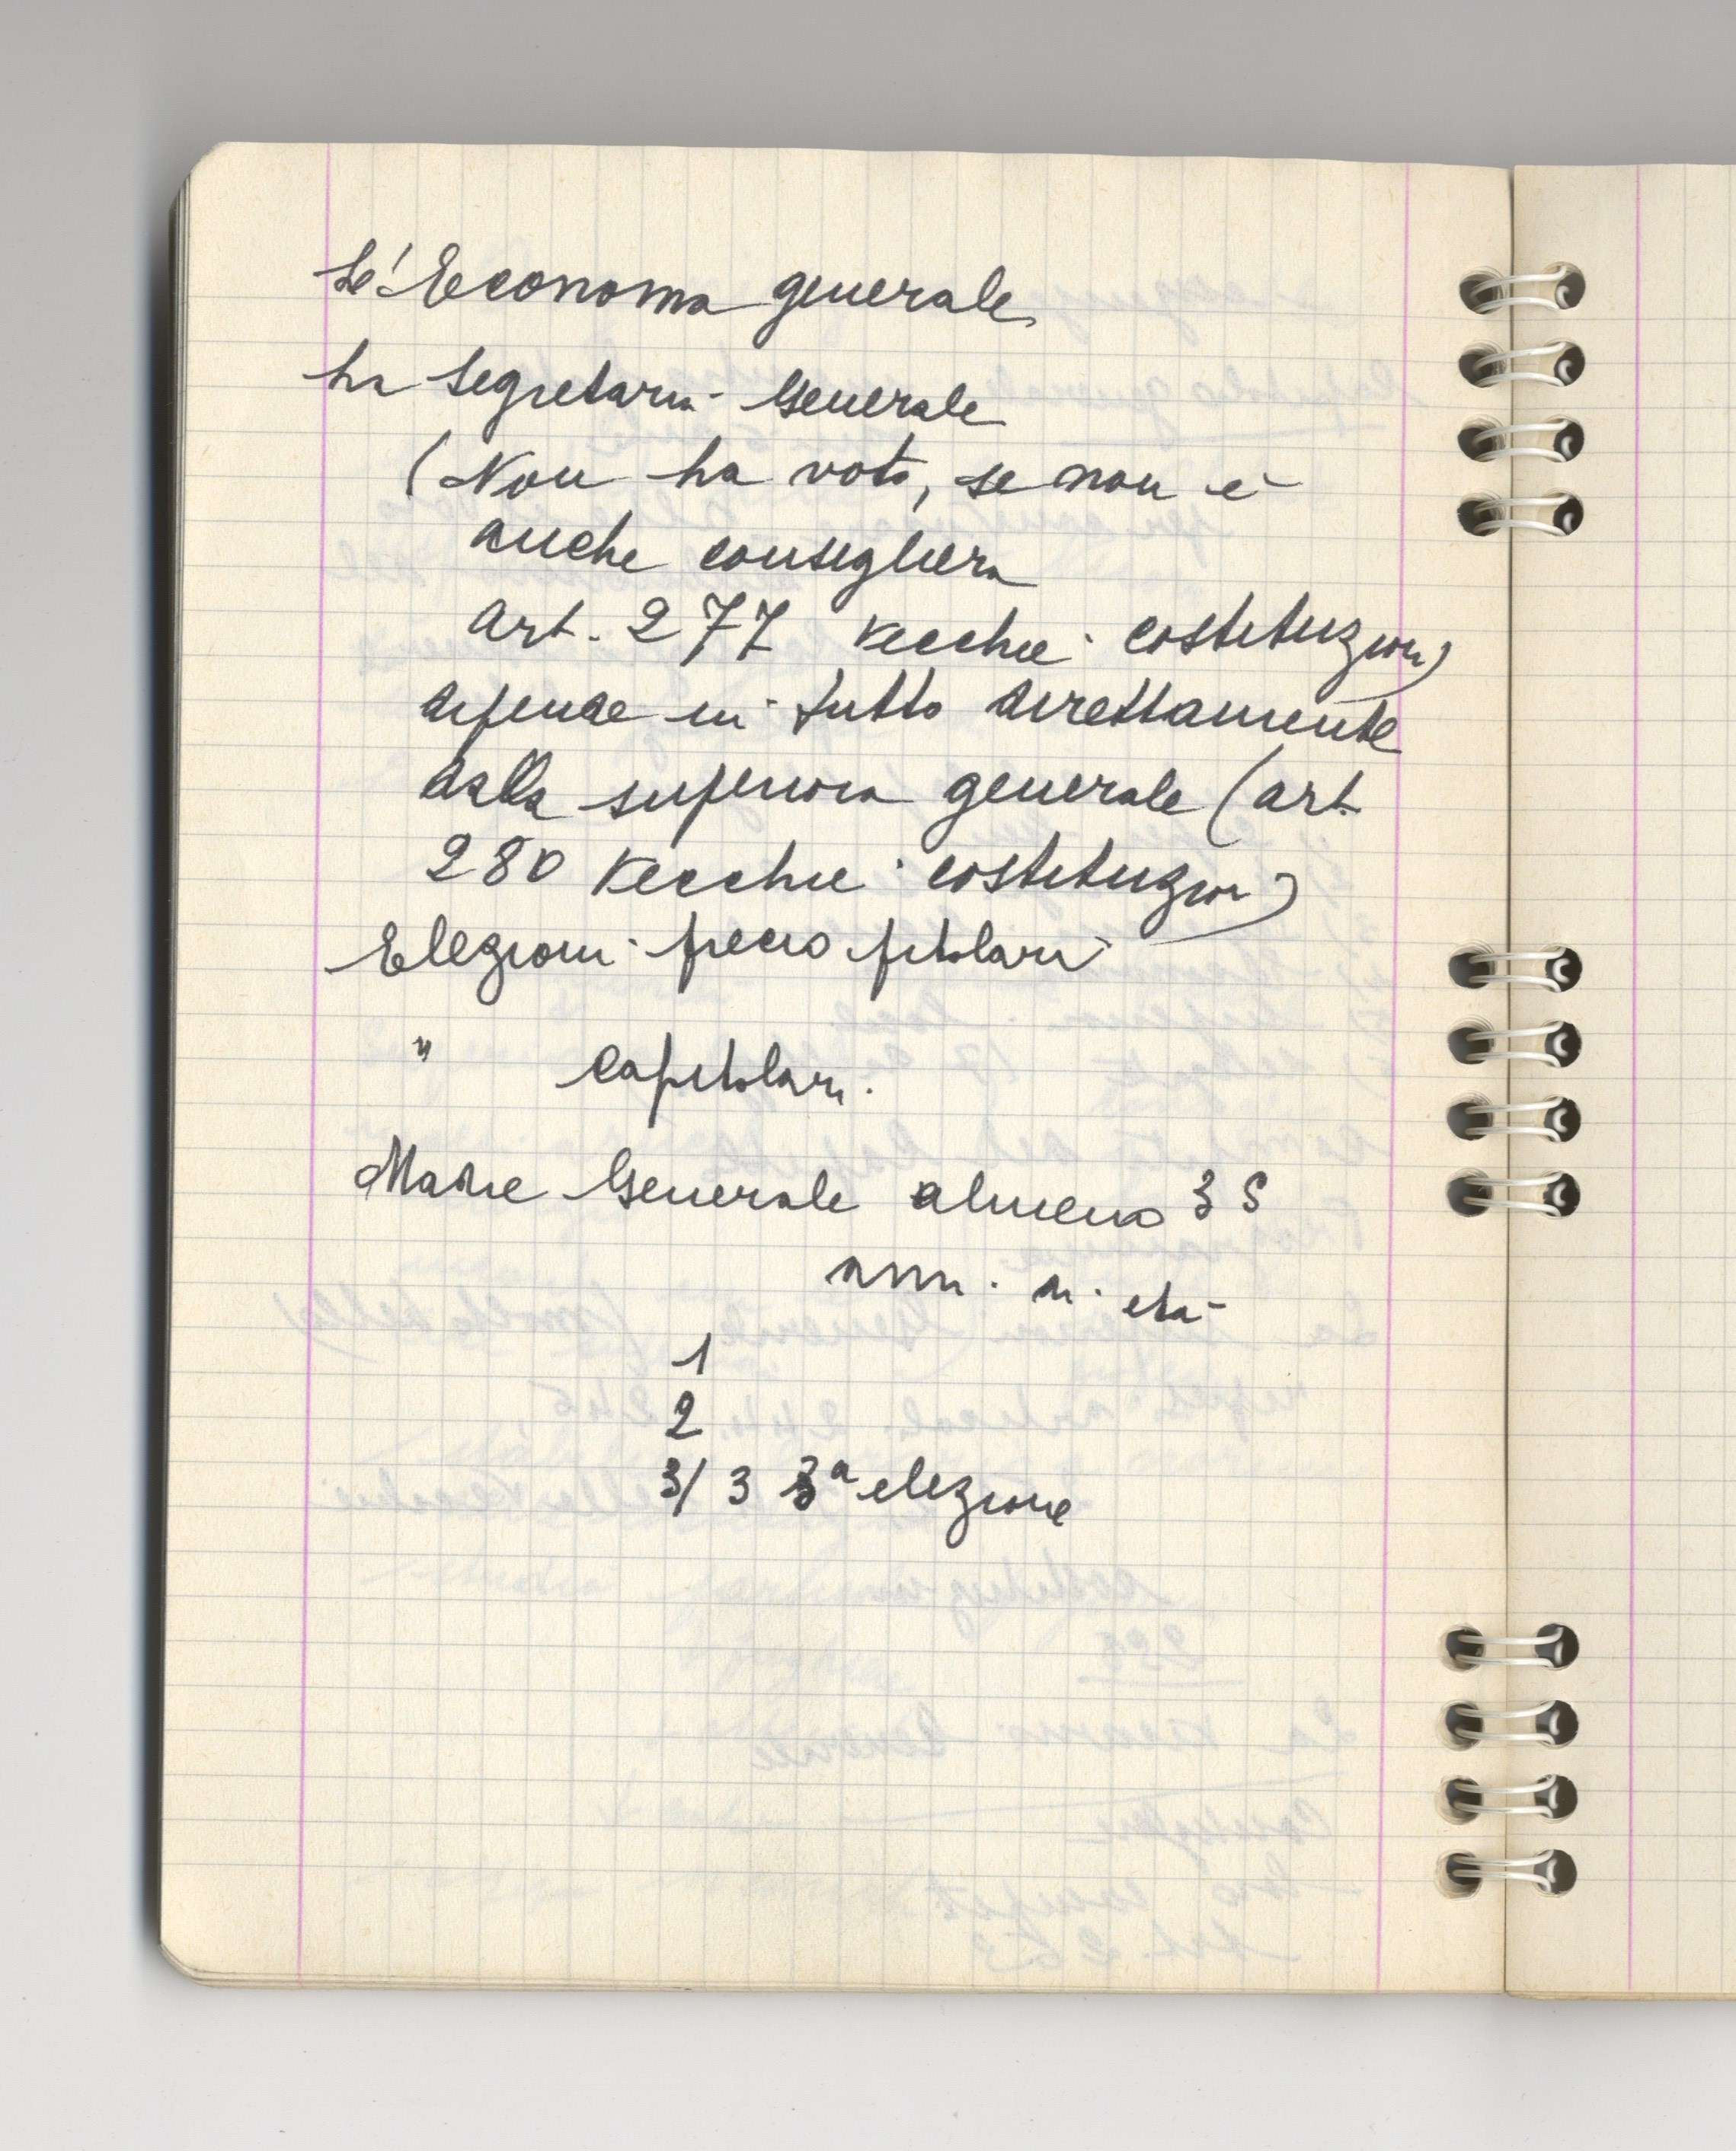 L'Economa generale
La Segretaria Generale
(Non ha voto, se non è
anche consigliera
Art. 277 Vecchie costituzioni)
dipende in tutto direttamente
dalla superiora generale (art.
280 Vecchie costituzioni)
Elezioni pitolari
" Capitolari.
Madre Generale almeno 35
anni di età
1
2
3/ 3 3ª elezione